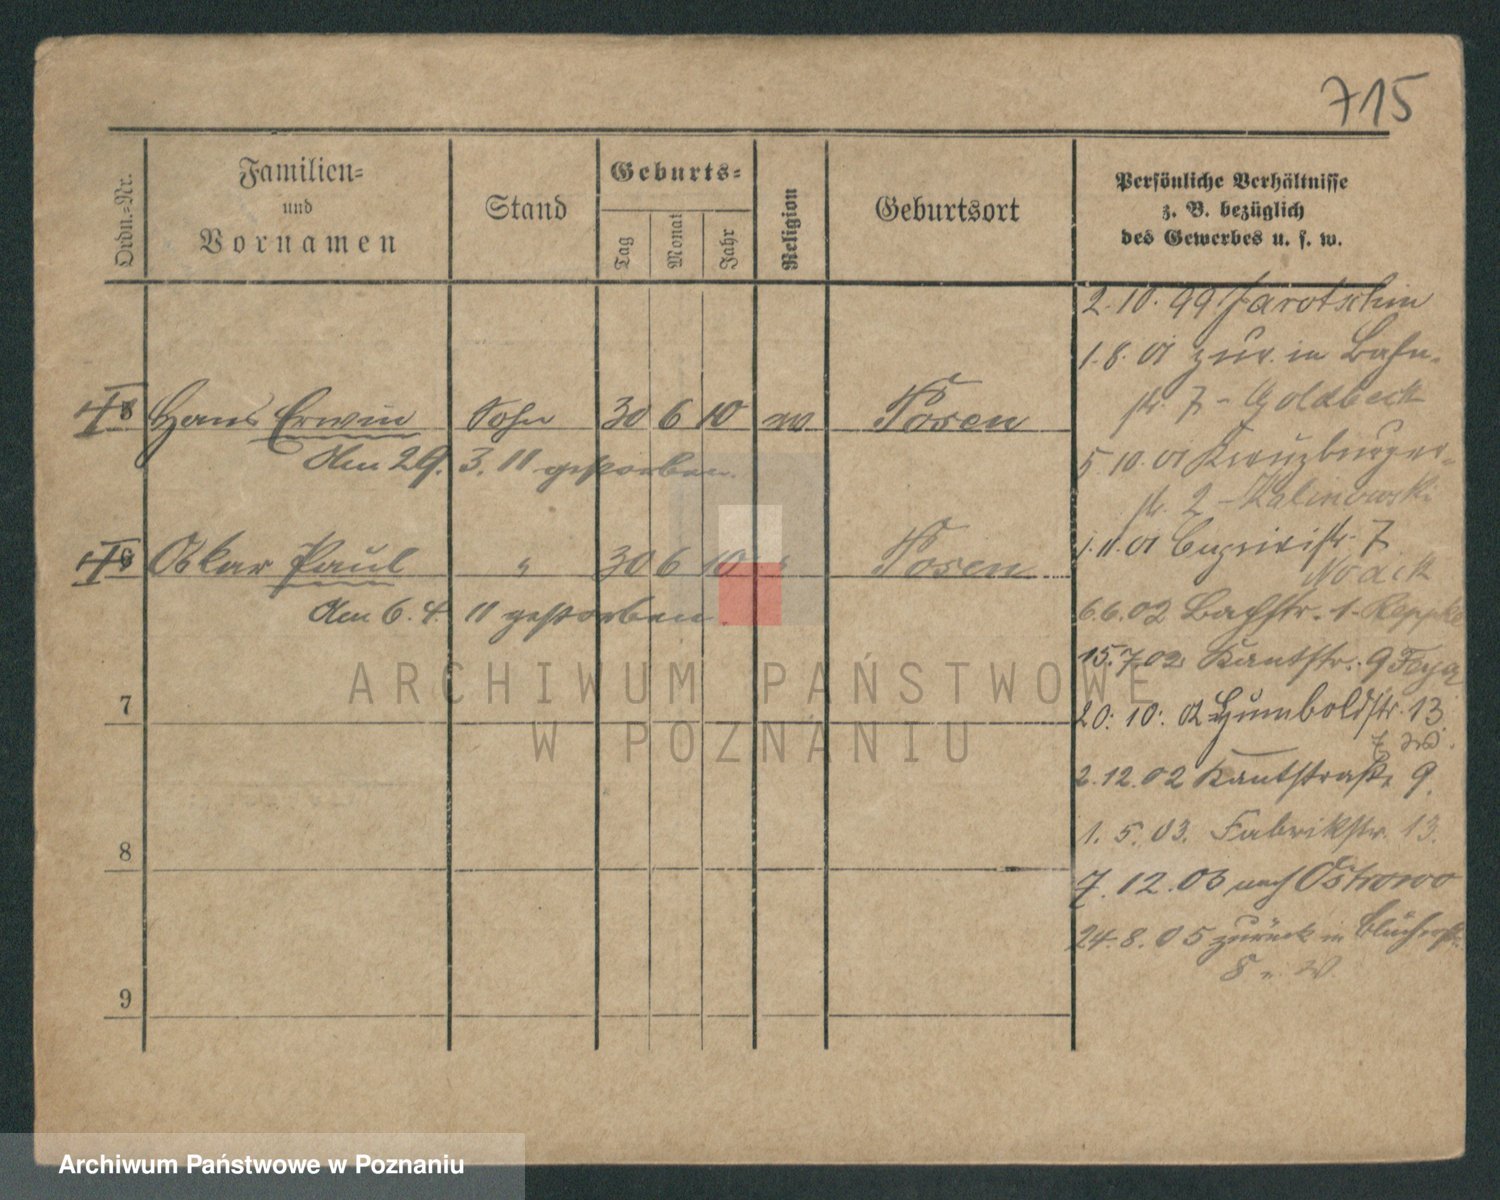 715
Ordn.-Nr.
Familien-
und
Vornamen
Stand
Geburts-
Tag
Monat
Jahr
Religion
Geburtsort
Persönliche Verhältnisse
z. B. bezüglich
des Gewerbes u. s. w.
5 Hans Erwin Sohn 30 6 10 Posen
den 29. 3. 11 gestorben.
6 Oskar Paul " 30 6 10 " Posen
den 6. 4. 11 gestorben.
7
8
9
2.10.99 Jarotschin
1.8.01 zur. in Bahn-
str. 7 - Goldbeck
5.10.01 Kreuzburger-
str. 2 - Kalinowski
1.11.01 7
Noack
6.6.02 Bachstr. 1 -
15.7.02 Kantstr. 9
20.10.02 Humboldstr. 13
2.12.02 Kantstraße 9.
1.5.03. Fabrikstr. 13.
7.12.03 nach Ostrowo
24.8.05 zurück in Blücherstr.
8
ARCHIWUM PAŃSTWOWE
W POZNANIU
Archiwum Państwowe w Poznaniu